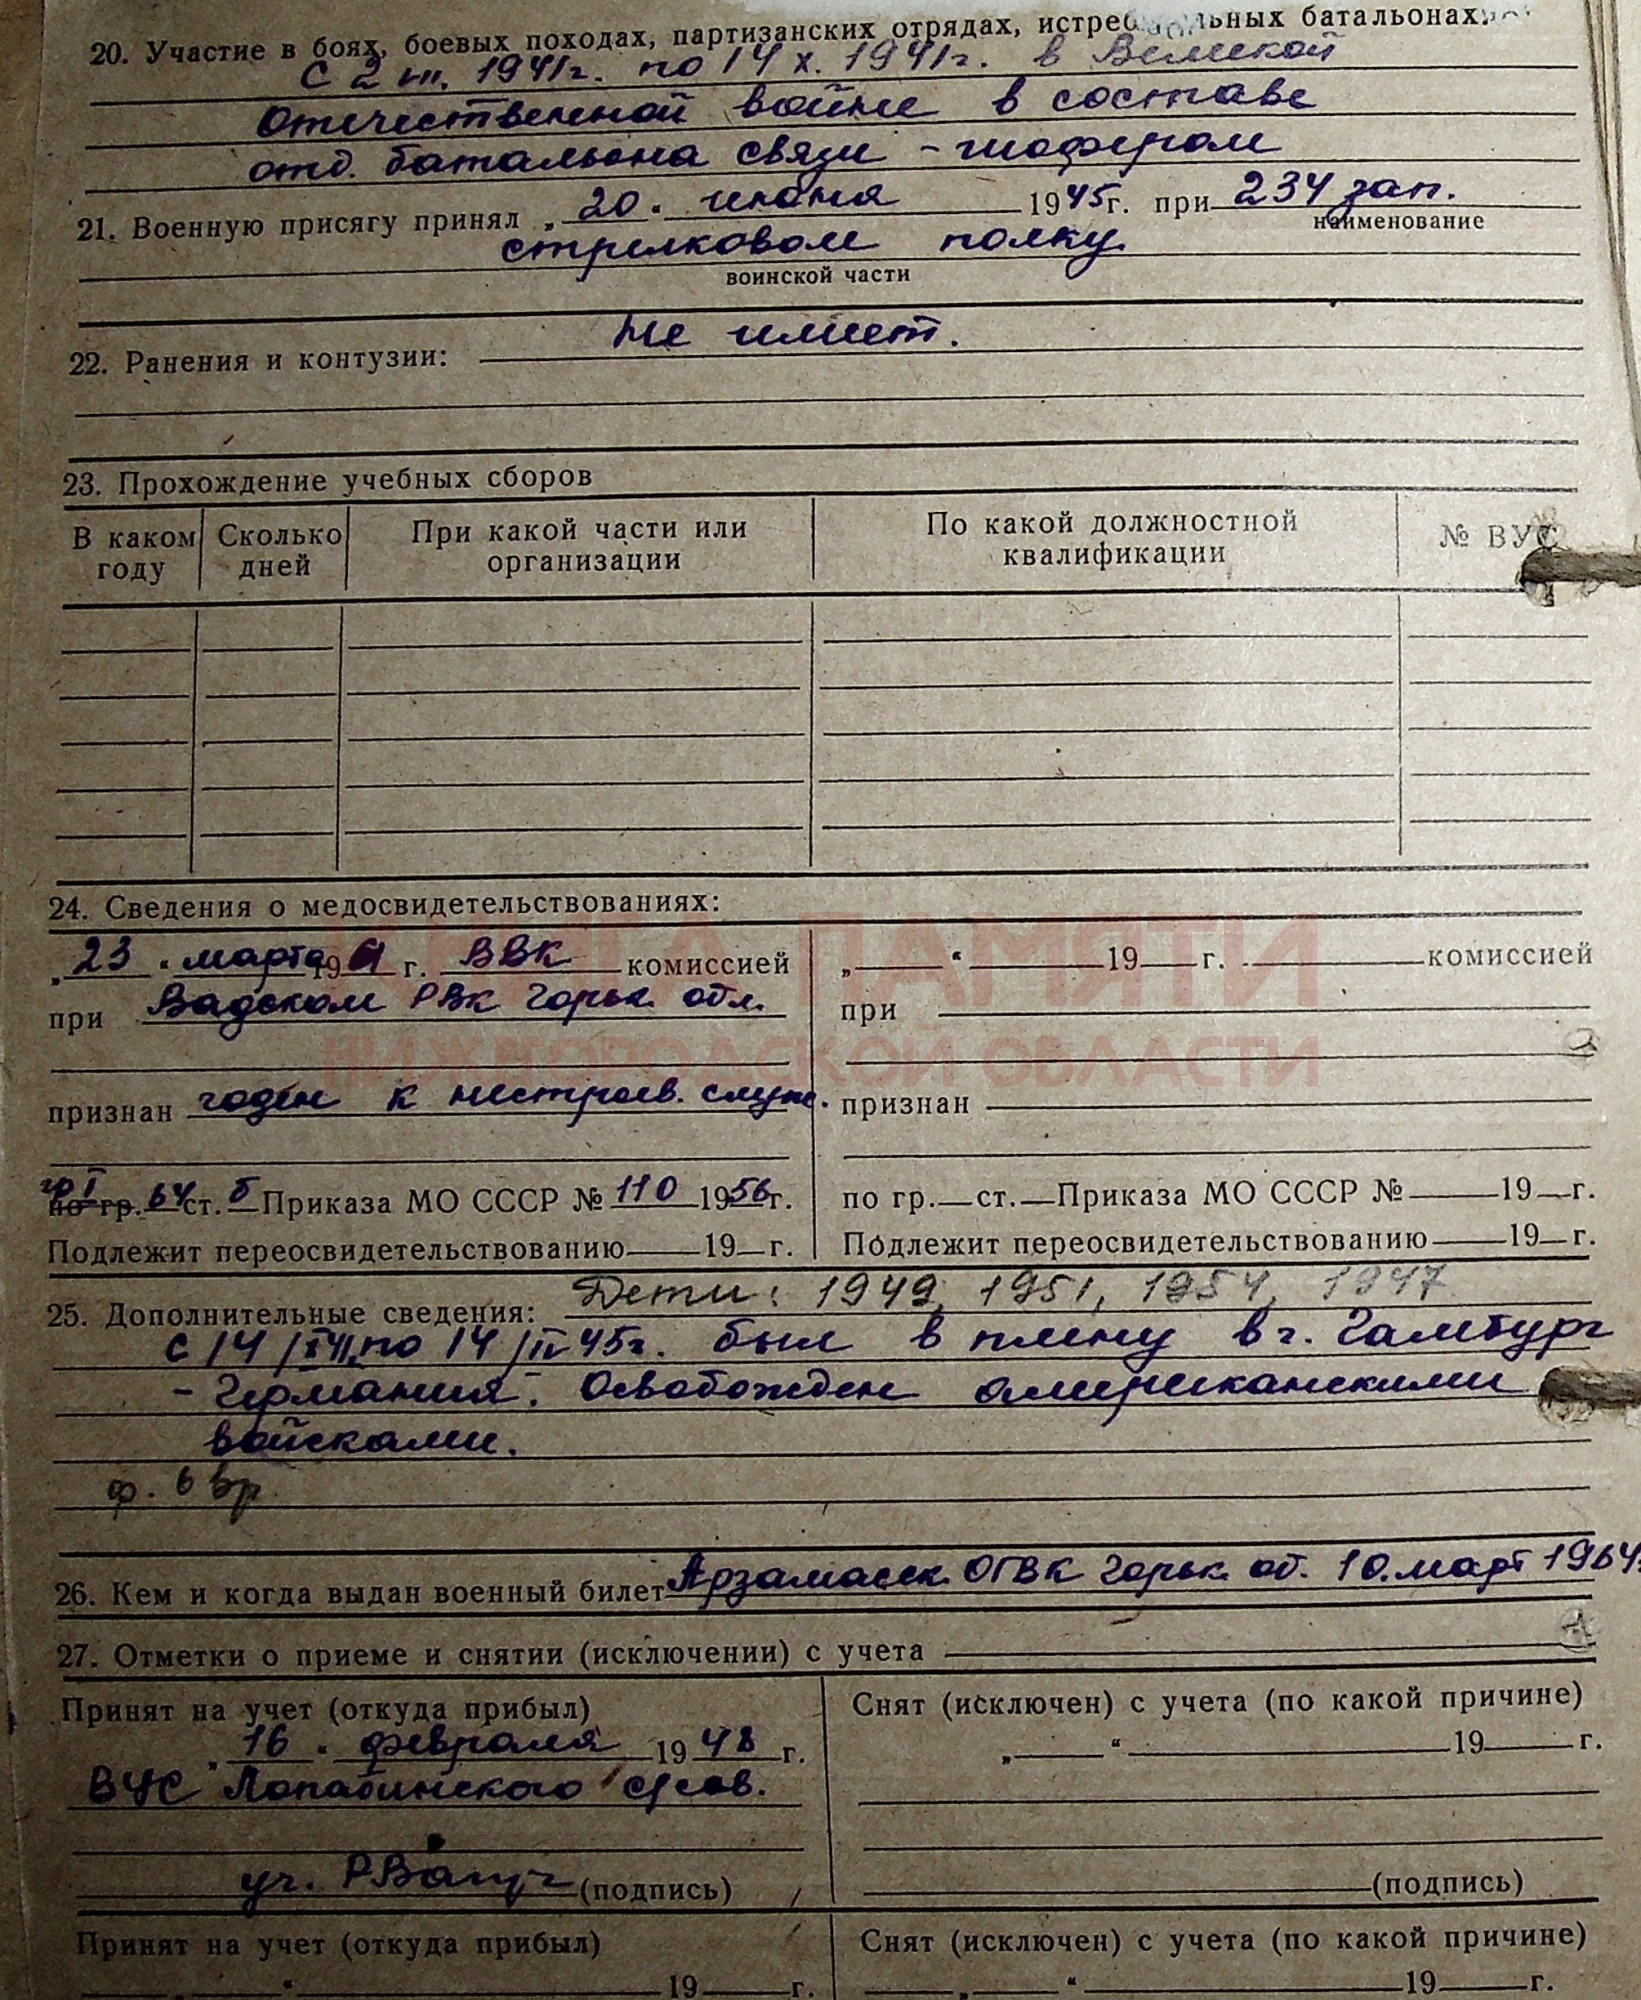 20. Участие в боях, боевых походах, партизанских отрядах, истребительных батальонах:
С 2 VII. 1941г. по 14 X. 1941г. в Великой
Отечественной войне в составе
отд. батальона связи - шофером
21. Военную присягу принял „20“ июня 1945г. при 234 зап.
наименование
стрелковом полку.
воинской части
22. Ранения и контузии: Не имеет.
23. Прохождение учебных сборов
В каком году Сколько дней При какой части или организации По какой должностной квалификации № ВУС
24. Сведения о медосвидетельствованиях:
„23“ марта 1961 г. ВВК комиссией
при Вадском РВК Горьк. обл.
признан годен к нестроев. служ.
гр I
по гр. 64 ст. б Приказа МО СССР № 110 1956г.
Подлежит переосвидетельствованию 19 г.
„ “ 19 г. комиссией
при
признан
по гр. ст. Приказа МО СССР № 19 г.
Подлежит переосвидетельствованию 19 г.
КНИГА ПАМЯТИ
НИЖЕГОРОДСКОЙ ОБЛАСТИ
25. Дополнительные сведения: Дети: 1949, 1951, 1954, 1947
с 14/X 41 по 14/IV 45г. был в плену в г. Гамбург
- Германия. Освобожден американскими
войсками.
ф. 6 вр
26. Кем и когда выдан военный билет Арзамасск. ОГВК Горьк. об. 10. март 1964.
27. Отметки о приеме и снятии (исключении) с учета
Принят на учет (откуда прибыл)
„16“ февраля 1948 г.
ВУС Лопатинского с/сов.
(подпись)
Снят (исключен) с учета (по какой причине)
„ “ 19 г.
(подпись)
Принят на учет (откуда прибыл)
„ “ 19 г.
Снят (исключен) с учета (по какой причине)
„ “ 19 г.